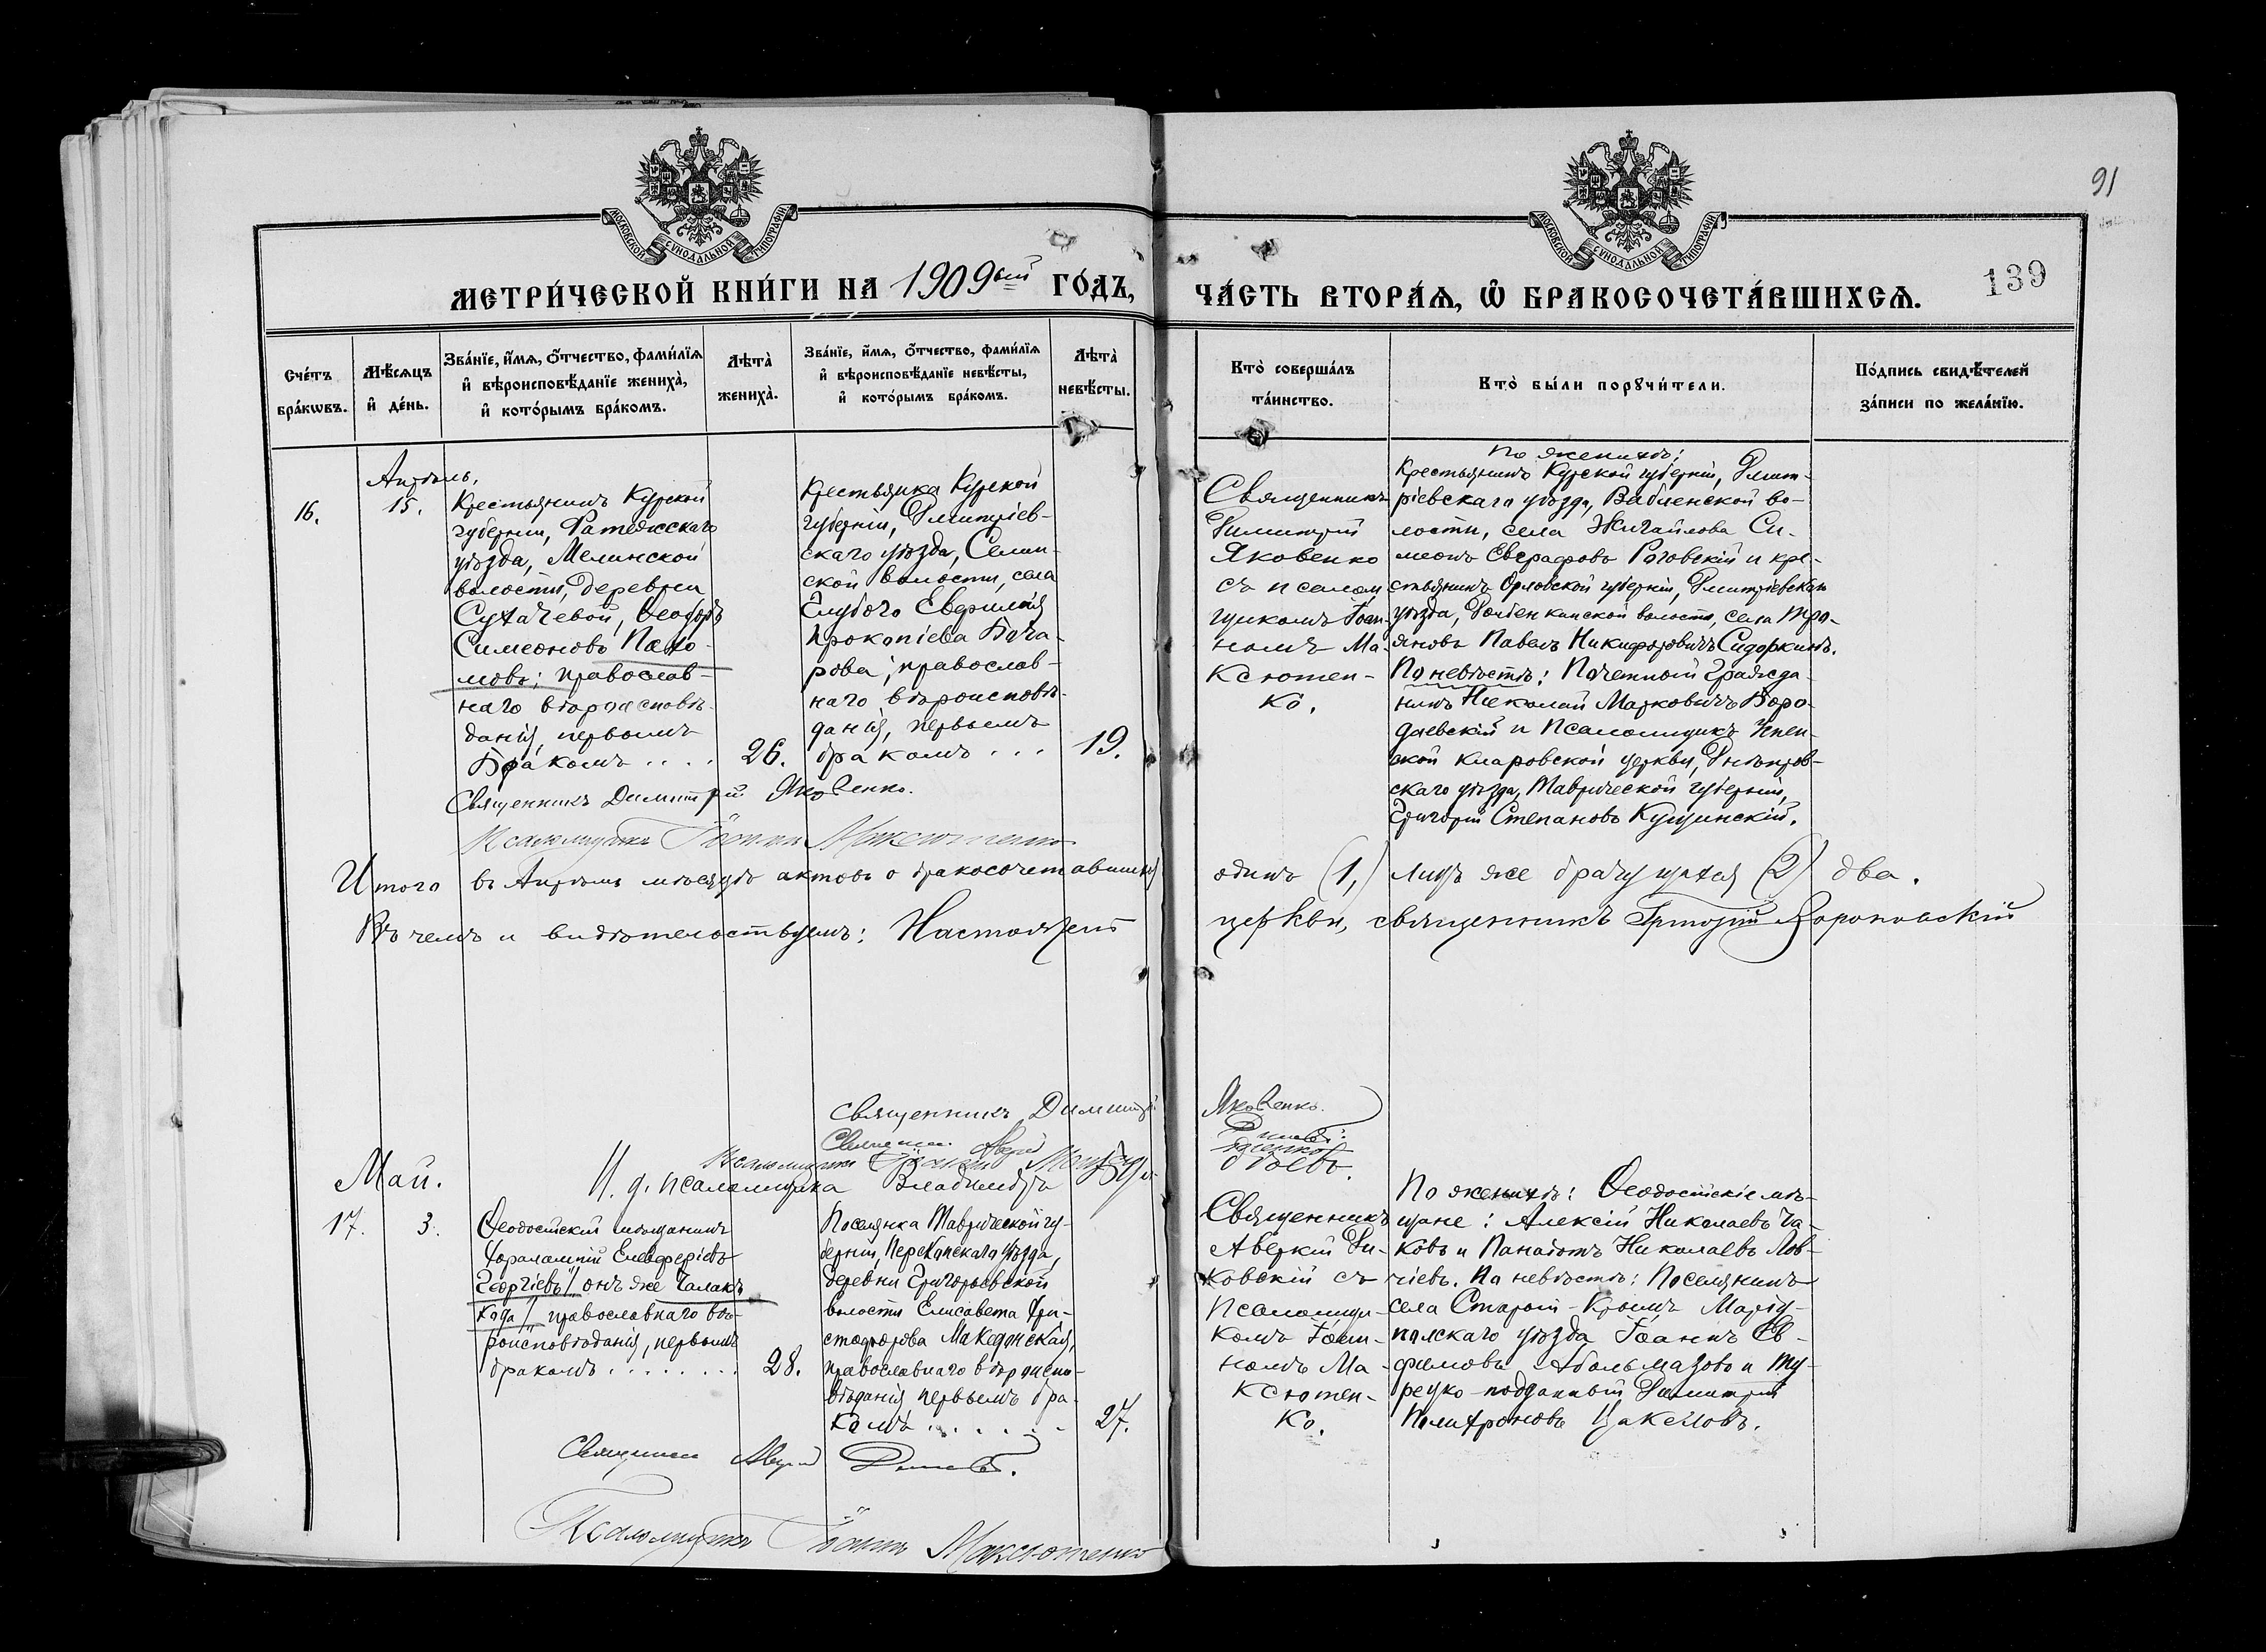 91
МОСКОВСКОЙ СѴНОДАЛЬНОЙ ТИПОГРАФІИ
МОСКОВСКОЙ СѴНОДАЛЬНОЙ ТИПОГРАФІИ
139
МЕТРИ́ЧЕСКОЙ КНИ́ГИ НА 1909ый ГО́ДЪ,
ЧА́СТЬ ВТОРА́Ѧ, Ѡ҆ БРАКОСОЧЕТА́ВШИХСѦ.
Сче́тъ
бра́кѡвъ.
Мѣ́сѧцъ
и҆ де́нь.
Зва́нїе, и҆́мѧ, ѻ҆́тчество, фами́лїѧ
и҆ вѣроисповѣ́данїе жениха̀,
и҆ кото́рымъ бра́комъ.
Лѣта̀
жениха̀.
Зва́нїе, и҆́мѧ, ѻ҆́тчество, фами́лїѧ
и҆ вѣроисповѣ́данїе невѣ́сты,
и҆ кото́рымъ бра́комъ.
Лѣта̀
невѣ́сты.
Кто̀ соверша́лъ
та́инство.
Кто̀ бы́ли порꙋчи́тели.
По́дпись свидѣ́телей
за́писи по жела́нїю.
16.
Апрѣль.
15.
Крестьянинъ Курской
губерніи, Фатежскаго
уѣзда, Мелинской
волости, деревни
Сухачевой, Ѳеодоръ
Симеоновъ Пахо-
мовъ; православ-
наго вѣроисповѣ-
данія, первымъ
бракомъ ....
26.
Крестьянка Курской
губерніи, Дмитріев-
скаго уѣзда, Селин-
ской волости, села
Глубого Евфимія
Прокопіева Боча-
рова; православ-
наго вѣроисповѣ-
данія, первымъ
бракомъ ...
19.
Священникъ
Димитрій
Яковенко
съ псалом-
щикомъ Іоан-
номъ Ма-
ксютен-
ко.
По женихѣ:
Крестьянинъ Курской губерніи, Дмит-
ріевскаго уѣзда, Вабленской во-
лости, села Жигайлова Си-
меонъ Евграфовъ Роговскій и кре-
стьянинъ Орловской губерніи, Дмитріевскаго
уѣзда, волости, села Тро-
яновъ Павелъ Никифоровичъ Сидоркинъ.
По невѣстѣ: Почетный гражда-
нинъ Николай Марковичъ Боро-
даевскій и псаломщикъ Успен-
ской церкви, Днѣпров-
скаго уѣзда, Таврической губерніи,
Григорій Степановъ Кущинскій.
Священникъ Димитрій Яковенко.
Псаломщикъ Іоаннъ Максютенко
Итого въ Апрѣлѣ мѣсяцѣ актовъ о бракосочетавшихся одинъ (1,) лицъ же брачущихся (2) два.
Въ чемъ и свидѣтельствуемъ: Настоятель церкви, священникъ Григорій
Священникъ Димитрій Яковенко.
Священ. Аверкій
Псаломщикъ Іоаннъ
И. д. псаломщика Владимиръ
Май.
17.
3.
Ѳеодосійскій мѣщанинъ
Харалампій Елевферіевъ
Георгіевъ /онъ же Чалах-
ходя/ православнаго вѣ-
роисповѣданія, первымъ
бракомъ .......
28.
Поселянка Таврической гу-
берніи, Перекопскаго уѣзда,
деревни Григорьевской
волости Елисавета Хри-
стофорова Македонская,
православнаго вѣроиспо-
вѣданія первымъ бра-
комъ ......
27.
Священникъ
Аверкій Ди-
ковскій съ
псаломщи-
комъ Іоан-
номъ Ма-
ксютен-
ко.
По женихѣ: Ѳеодосійскіе мѣ-
щане: Алексій Николаевъ Ча-
ковъ и Панаіотъ Николаевъ Лов-
чіевъ. По невѣстѣ: Поселянинъ
села Старый-Крымъ Маріу-
польскаго уѣзда Іоаннъ Ев-
фимовъ Абалмазовъ и ту-
рецко-подданный Димитрій
Полихроновъ
Священник Аверкій
Псаломщикъ Іоаннъ Максютенко